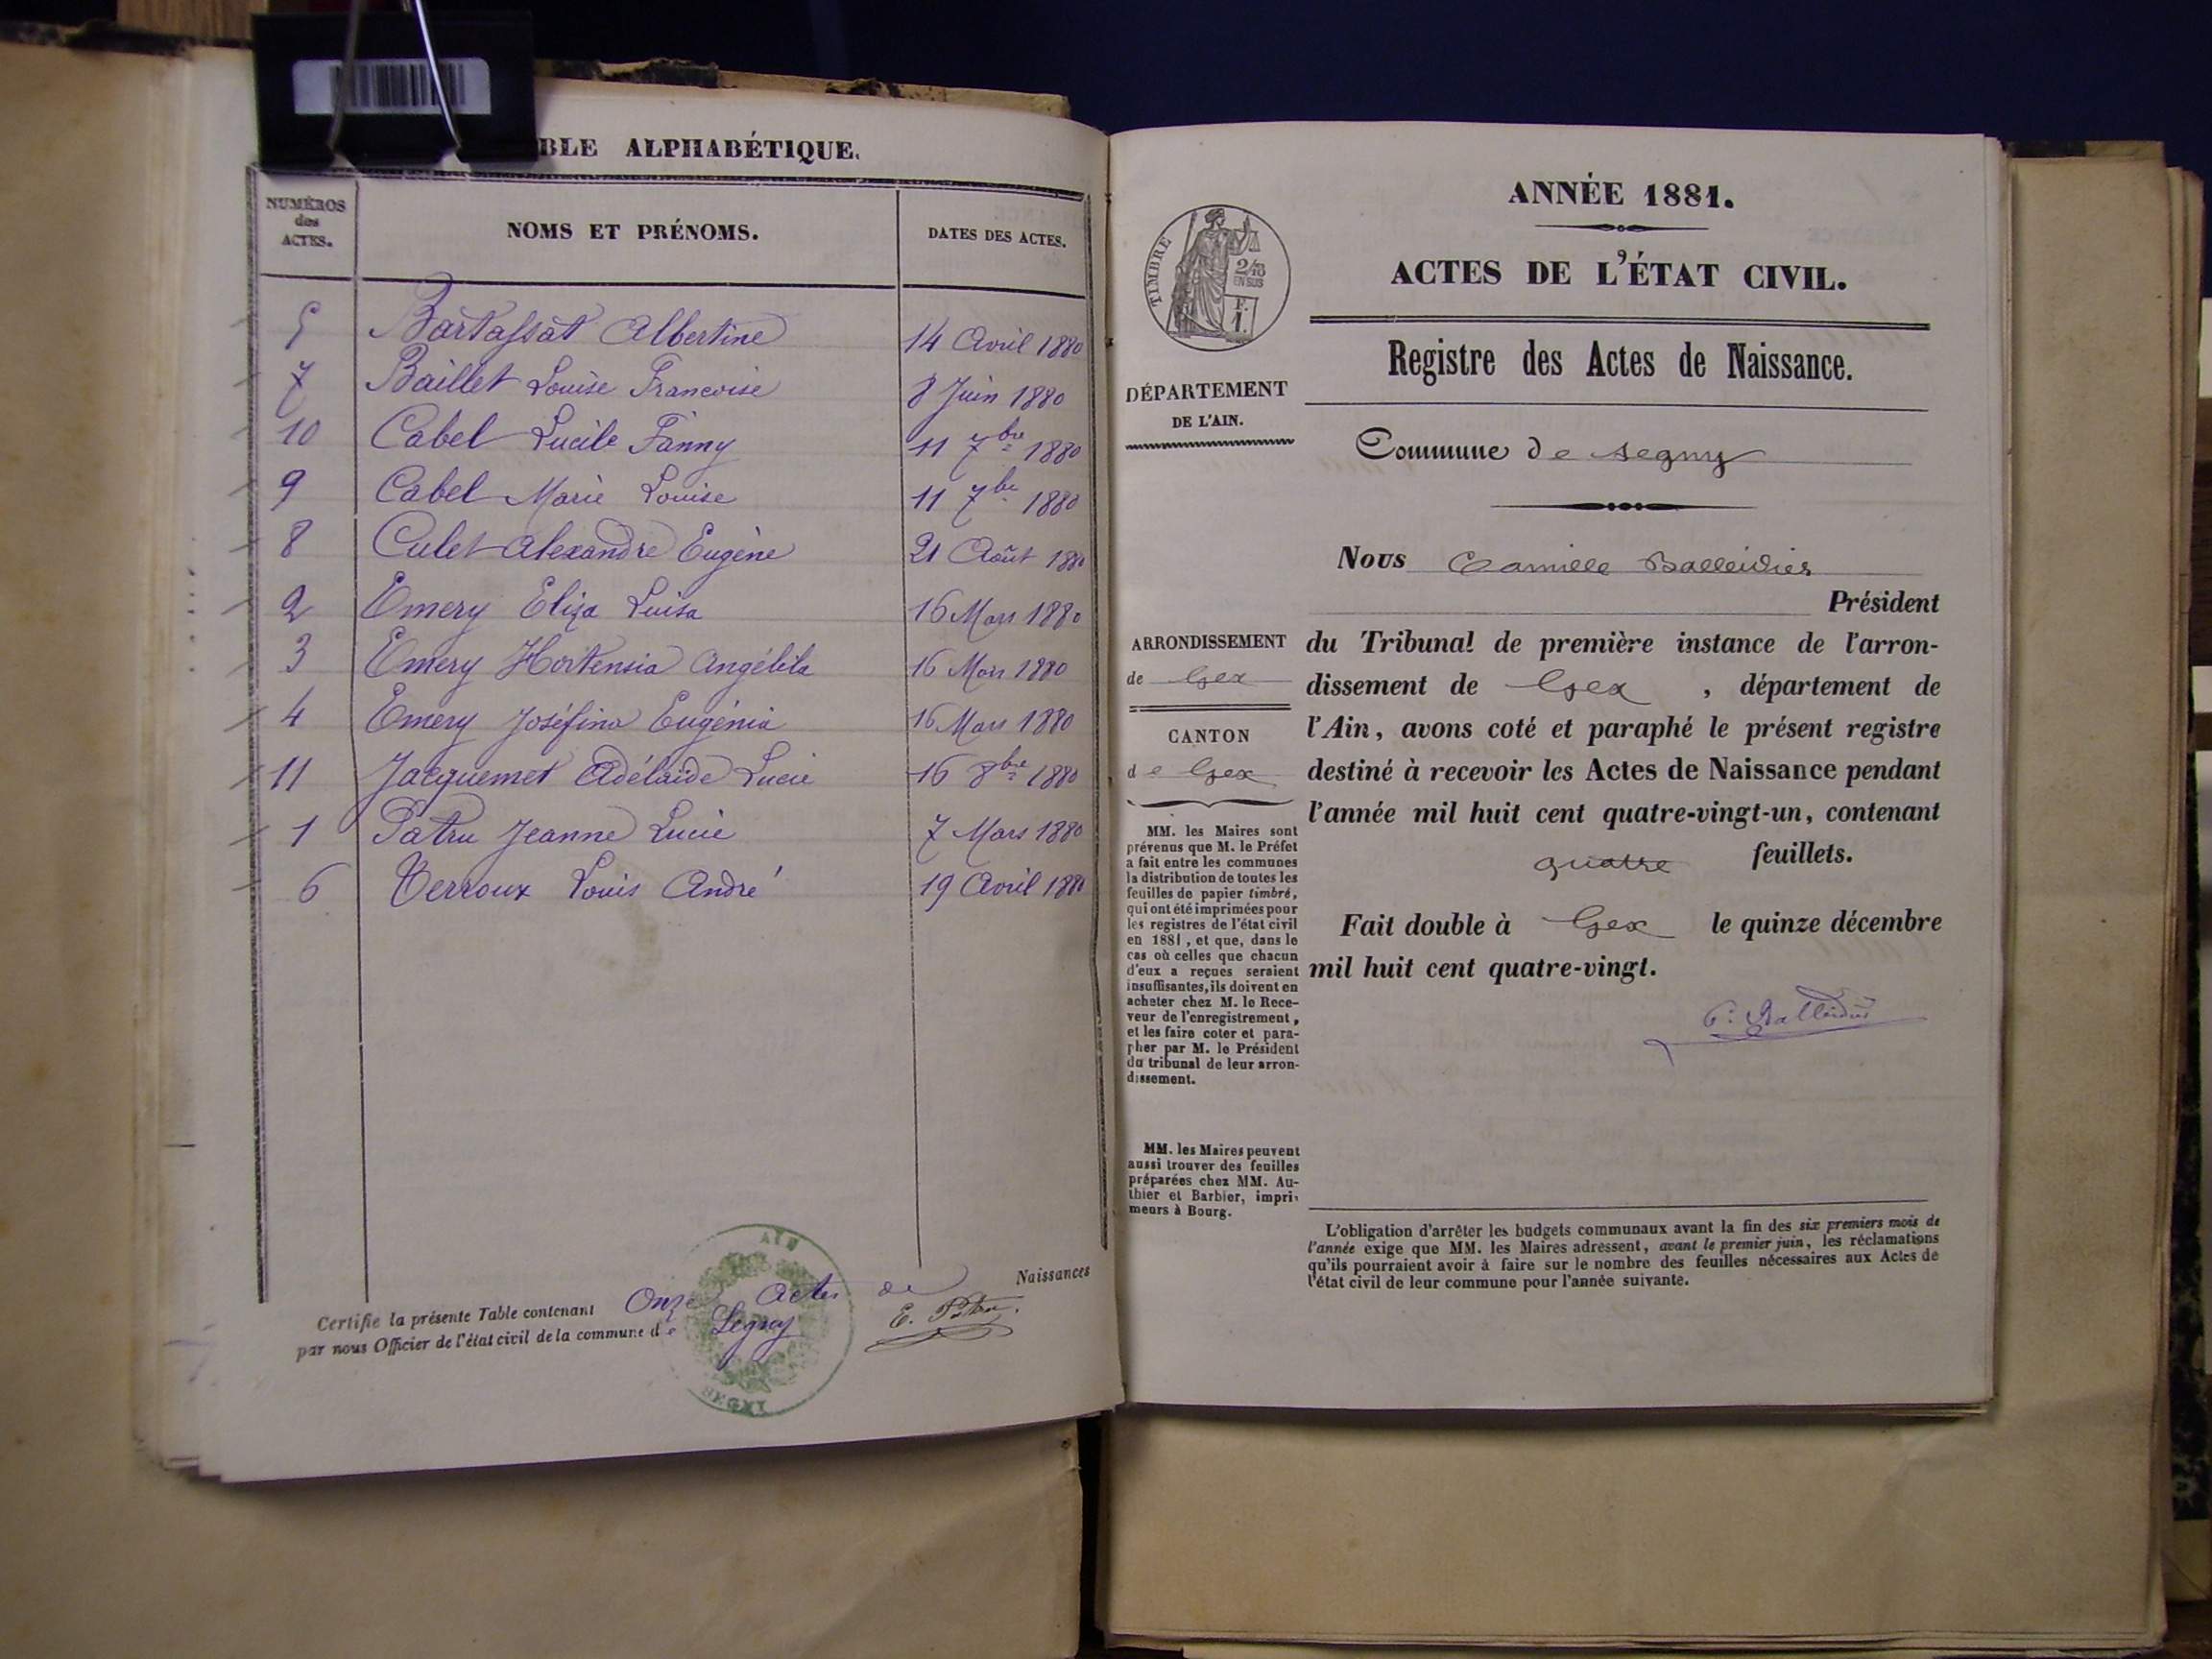 BLE ALPHABÉTIQUE.
NUMÉROS des ACTES.
NOMS ET PRÉNOMS.
DATES DES ACTES.
5 Bartassat Albertine 14 Avril 1880
7 Baillet Louise Francoise 8 Juin 1880
10 Cabel Lucile Fanny 11 7bre 1880
9 Cabel Marie Louise 11 7bre 1880
8 Culet Alexandre Eugène 21 Août 1880
2 Emery Eliza Luisa 16 Mars 1880
3 Emery Hortensia Angélila 16 Mars 1880
4 Emery Joséfina Eugénia 16 Mars 1880
11 Jacquemet Adélaïde Lucie 16 8bre 1880
1 Patru Jeanne Lucie 7 Mars 1880
6 Verroux Louis André 19 Avril 1880
Certifie la présente Table contenant Onze Actes de Naissances
par nous Officier de l'état civil de la commune de Segny E. Patru.
AIN
SEGNY
ANNÉE 1881.
ACTES DE L'ÉTAT CIVIL.
Registre des Actes de Naissance.
TIMBRE
2/10
EN SUS
F.
1.
DÉPARTEMENT
DE L'AIN.
Commune de Segny
Nous Camille Balleidier
Président
du Tribunal de première instance de l'arron-
dissement de Gex, département de
l'Ain, avons coté et paraphé le présent registre
destiné à recevoir les Actes de Naissance pendant
l'année mil huit cent quatre-vingt-un, contenant
quatre feuillets.
Fait double à Gex le quinze décembre
mil huit cent quatre-vingt.
C. Balleidier
ARRONDISSEMENT
de Gex
CANTON
de Gex
MM. les Maires sont
prévenus que M. le Préfet
a fait entre les communes
la distribution de toutes les
feuilles de papier timbré,
qui ont été imprimées pour
les registres de l'état civil
en 1881, et que, dans le
cas où celles que chacun
d'eux a reçues seraient
insuffisantes, ils doivent en
acheter chez M. le Rece-
veur de l'enregistrement,
et les faire coter et para-
pher par M. le Président
du tribunal de leur arron-
dissement.
MM. les Maires peuvent
aussi trouver des feuilles
préparées chez MM. Au-
thier et Barbier, impri-
meurs à Bourg.
L'obligation d'arrêter les budgets communaux avant la fin des six premiers mois de
l'année exige que MM. les Maires adressent, avant le premier juin, les réclamations
qu'ils pourraient avoir à faire sur le nombre des feuilles nécessaires aux Actes de
l'état civil de leur commune pour l'année suivante.